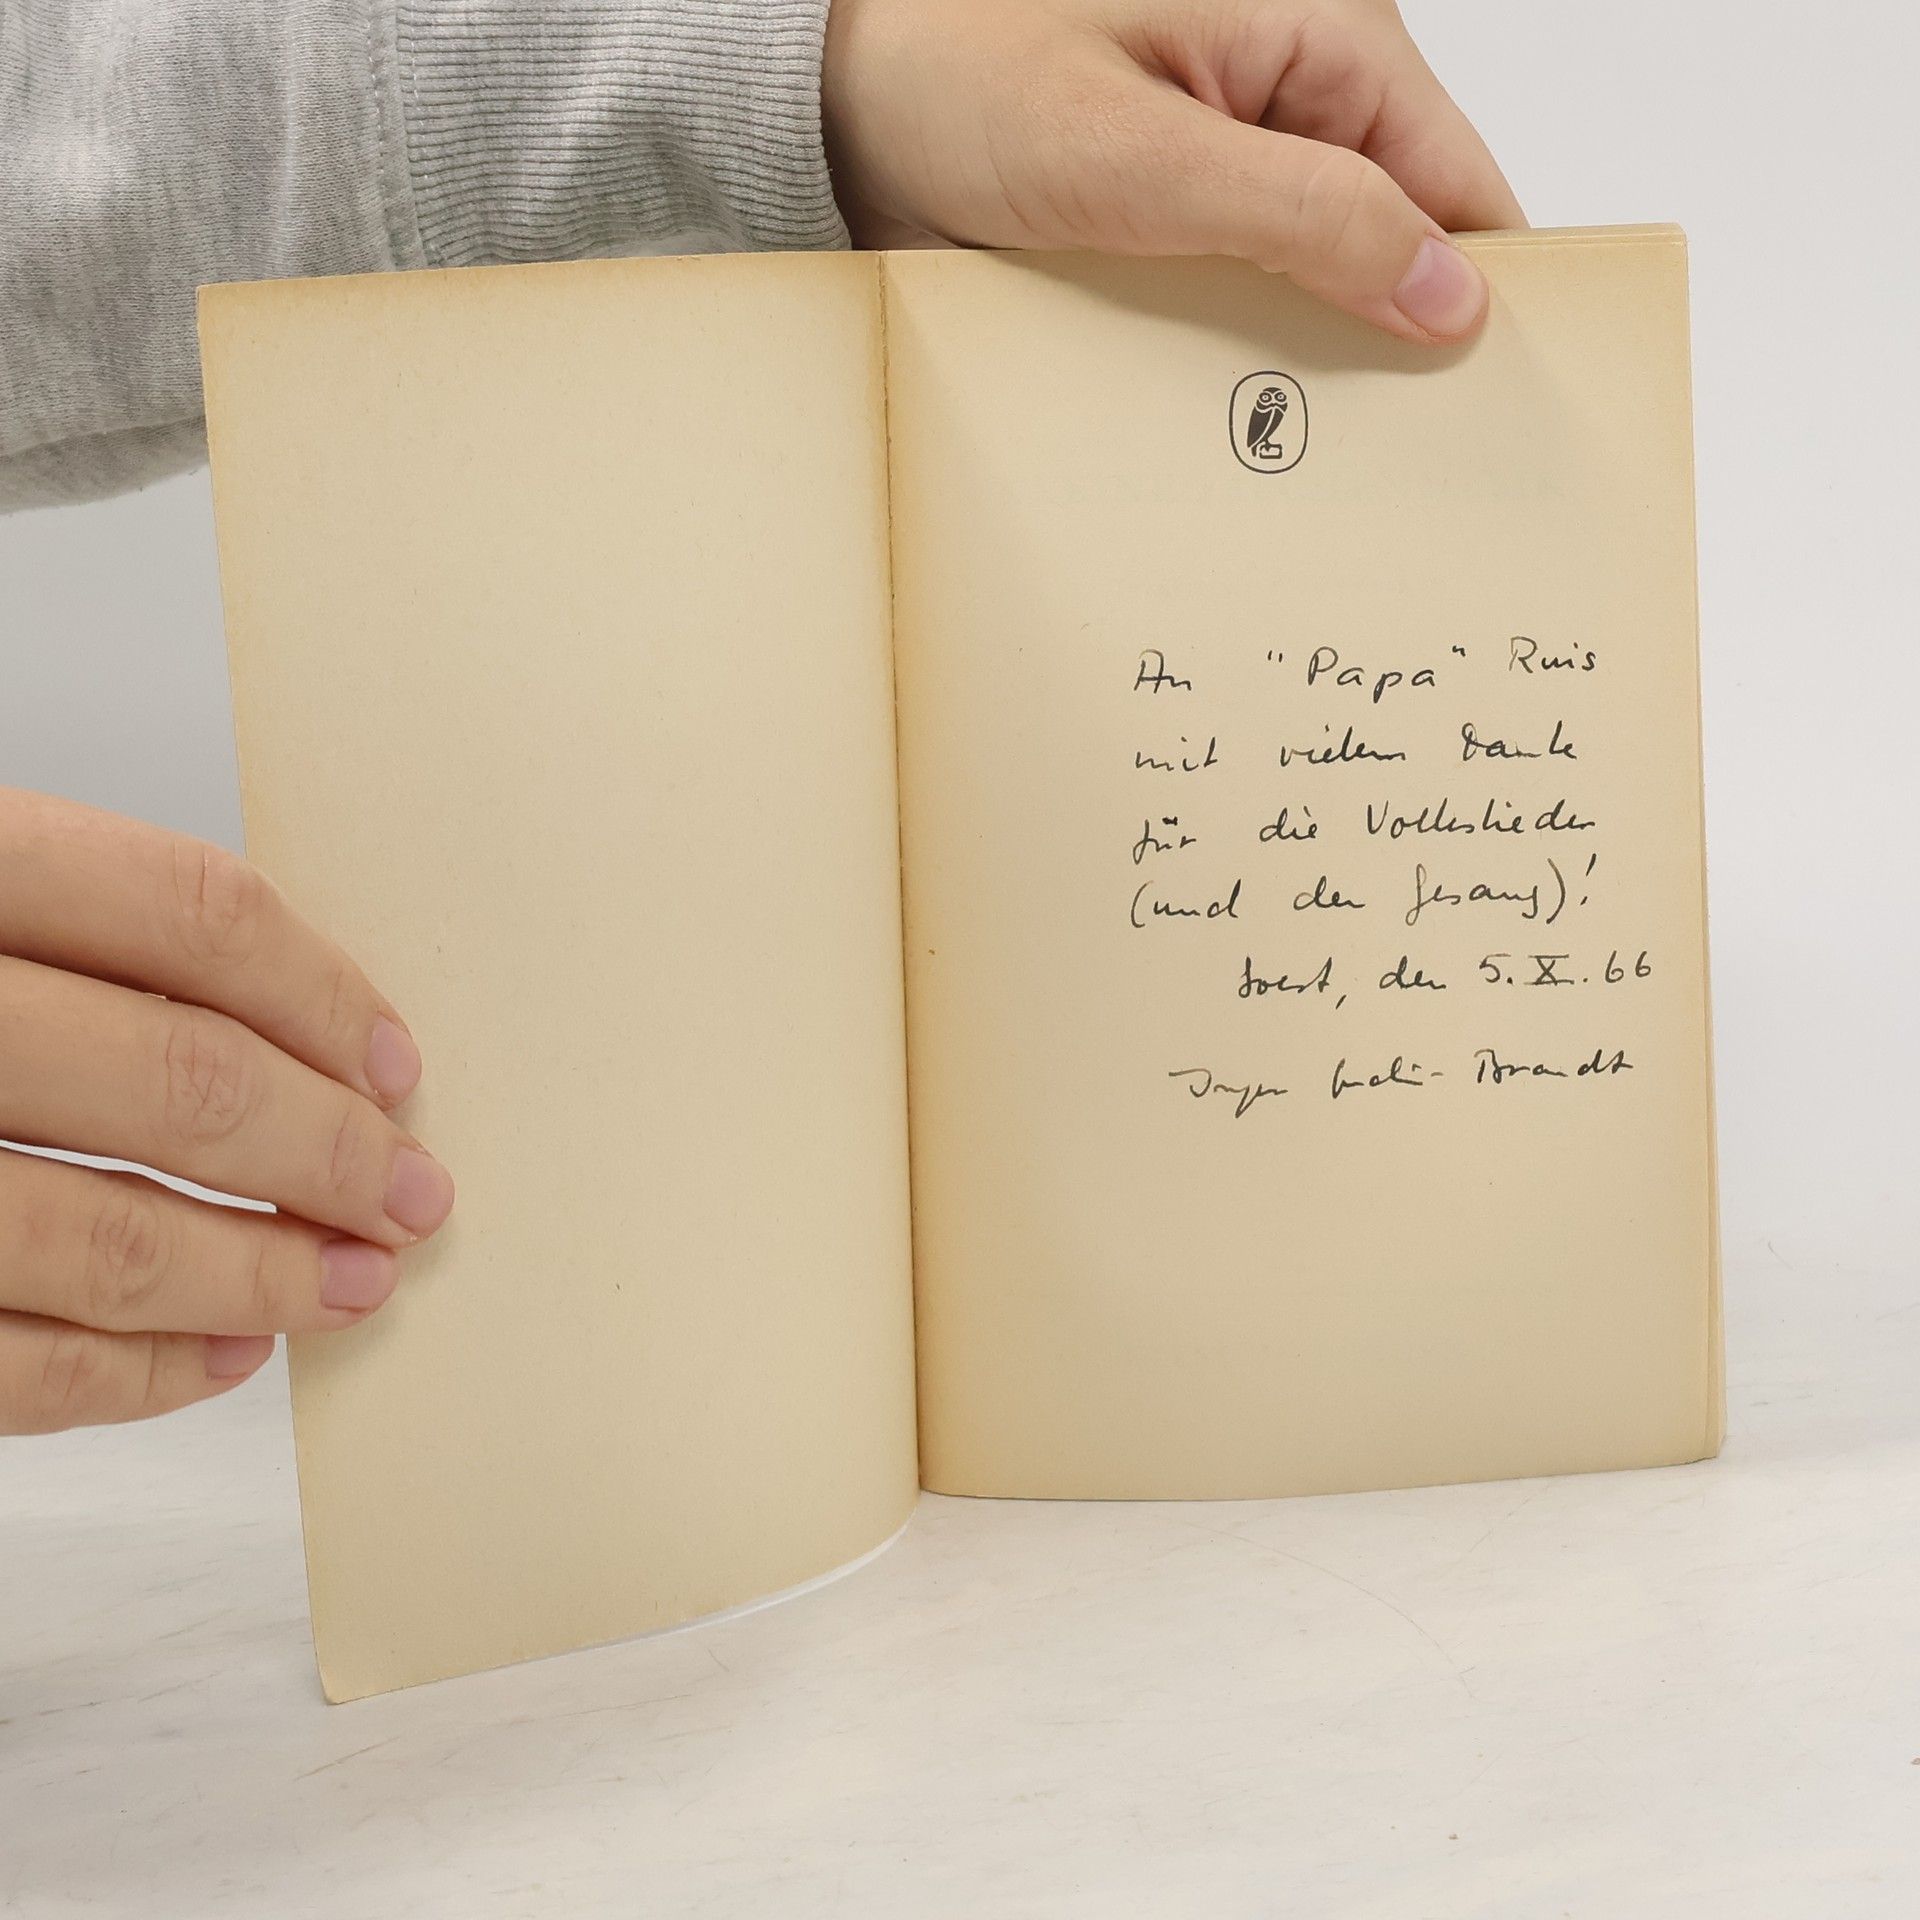 An "Papa" Ruis
mit vielem Danke
für die Volkslieder
(und den Gesang)!
Soest, den 5.X.66
Inger Brandt